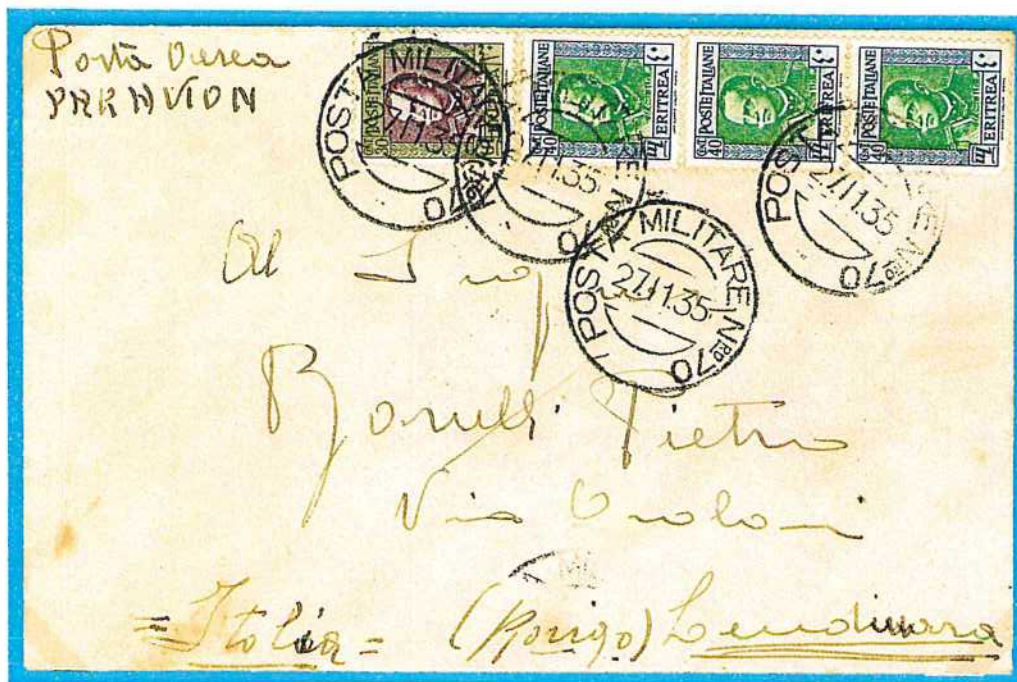 Posta Aerea
PAR AVION
POSTE ITALIANE
CENT 80
POSTE ITALIANE
CENT 40
ERITREA
POSTE ITALIANE
CENT 40
ERITREA
POSTE ITALIANE
CENT 40
ERITREA
POSTA MILITARE Nro 70
27.11.35
POSTA MILITARE Nro 70
27.11.35
POSTA MILITARE Nro 70
27.11.35
POSTA MILITARE Nro 70
27.11.35
Al
Pietro
Via
=Italia= (Rovigo) Lendinara